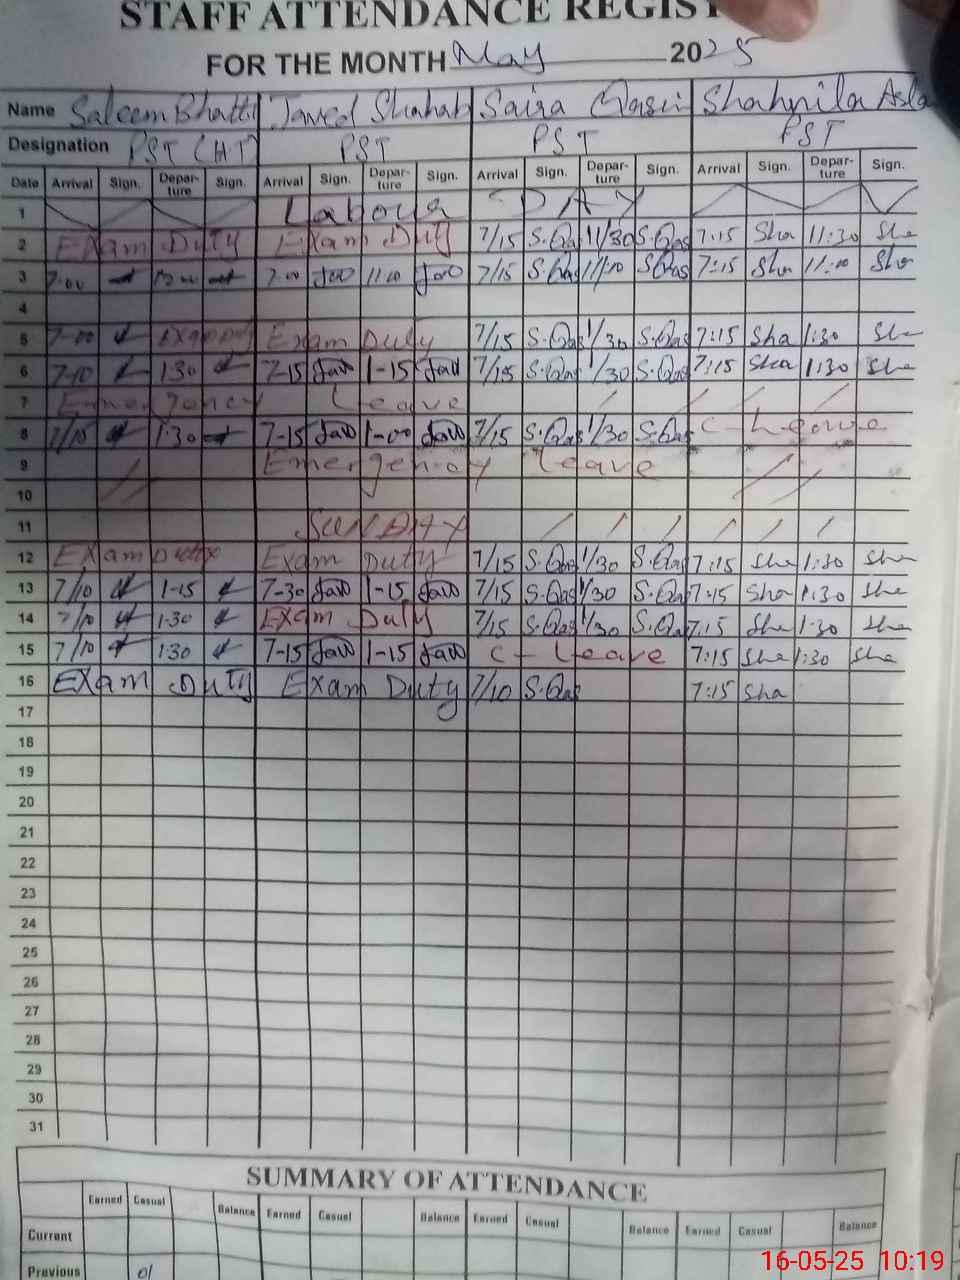 STAFF ATTENDANCE REGIST
FOR THE MONTH May 2025
Name Saleem Bhatti Javed Shahab Saira Qasi Shahnila Asla
Designation PST (HT) PST PST PST
Date Arrival Sign. Depar-ture Sign. Arrival Sign. Depar-ture Sign. Arrival Sign. Depar-ture Sign. Arrival Sign. Depar-ture Sign.
1 Labour DAY
2 EXam Duty Exam Duty 7/15 S.Qas 11/30 S.Qas 7:15 Sha 11:30 Sha
3 7-00 7-00 Jav 11-00 Jav 7/15 S.Qas 11/00 S.Qas 7:15 Sha 11:00 Sha
4
5 7-00 Exam Duty 7/15 S.Qas 1/30 S.Qas 7:15 Sha 1:30 Sh
6 7-10 1:30 7-15 Jav 1-15 Jav 7/15 S.Qas 1/30 S.Qas 7:15 Sha 1:30 She
7 Emergency Leave
8 7/10 1-30 7-15 Jav 1-00 Jav 7/15 S.Qas 1/30 S.Qas C-Leave
9 Emergency Leave
10
11 SUNDAY
12 EXam Duty Exam Duty 7/15 S.Qas 1/30 S.Qas 7:15 She 1:30 She
13 7/10 1-15 7-30 Jav 1-15 Jav 7/15 S.Qas 1/30 S.Qas 7:15 Sha 1:30 She
14 7/10 1-30 Exam Duty 7/15 S.Qas 1/30 S.Qas 7:15 She 1:30 She
15 7/10 1:30 7-15 Jav 1-15 Jav C-Leave 7:15 She 1:30 She
16 EXam Duty Exam Duty 7/10 S.Qas 7:15 Sha
17
18
19
20
21
22
23
24
25
26
27
28
29
30
31
SUMMARY OF ATTENDANCE
Earned Casual Balance Earned Casual Balance Earned Casual Balance Earned Casual Balance
Current
Previous 01
16-05-25 10:19